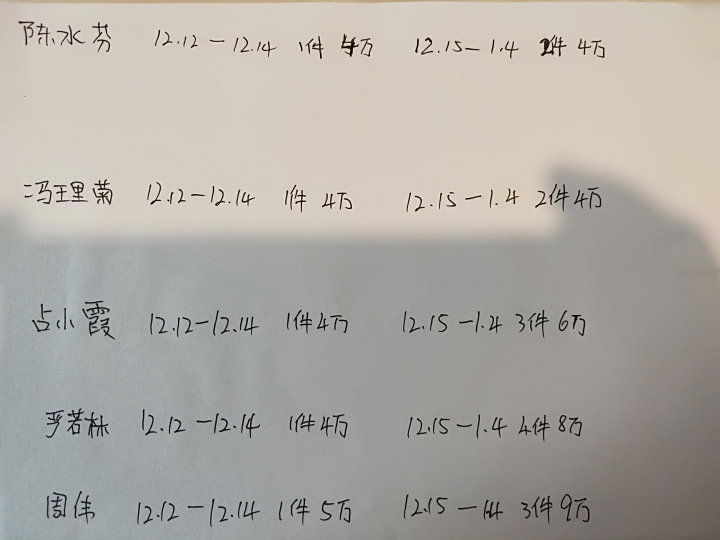 陈水芬 12.12－12.14 1件 4万 12.15－1.4 2件 4万
冯理菊 12.12－12.14 1件 4万 12.15－1.4 2件4万
占小霞 12.12－12.14 1件4万 12.15－1.4 3件 6万
严若林 12.12－12.14 1件4万 12.15－1.4 4件 8万
周伟 12.12－12.14 1件 5万 12.15－1.4 3件 9万